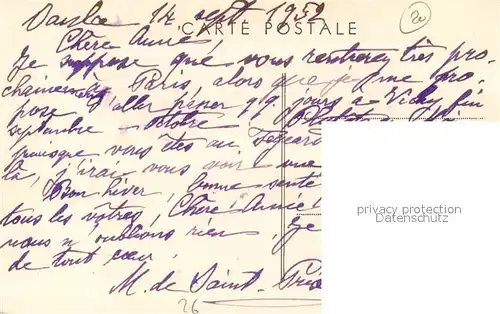 14 sept. 1952
CARTE POSTALE
Chère Annie,
Je suppose que vous rentrerez très pro-
chainement à Paris, alors que je me pro-
pose d'aller passer qq. jours à Vichy fin
septembre - octobre
puisque vous êtes au
là, j'irai vous voir une
Bon hiver, bonne santé
tous les vôtres, Chère Annie!
nous n'oublions rien. Je
de tout cœur.
M. de Saint-
26
20
privacy protection
www.oldthing.de